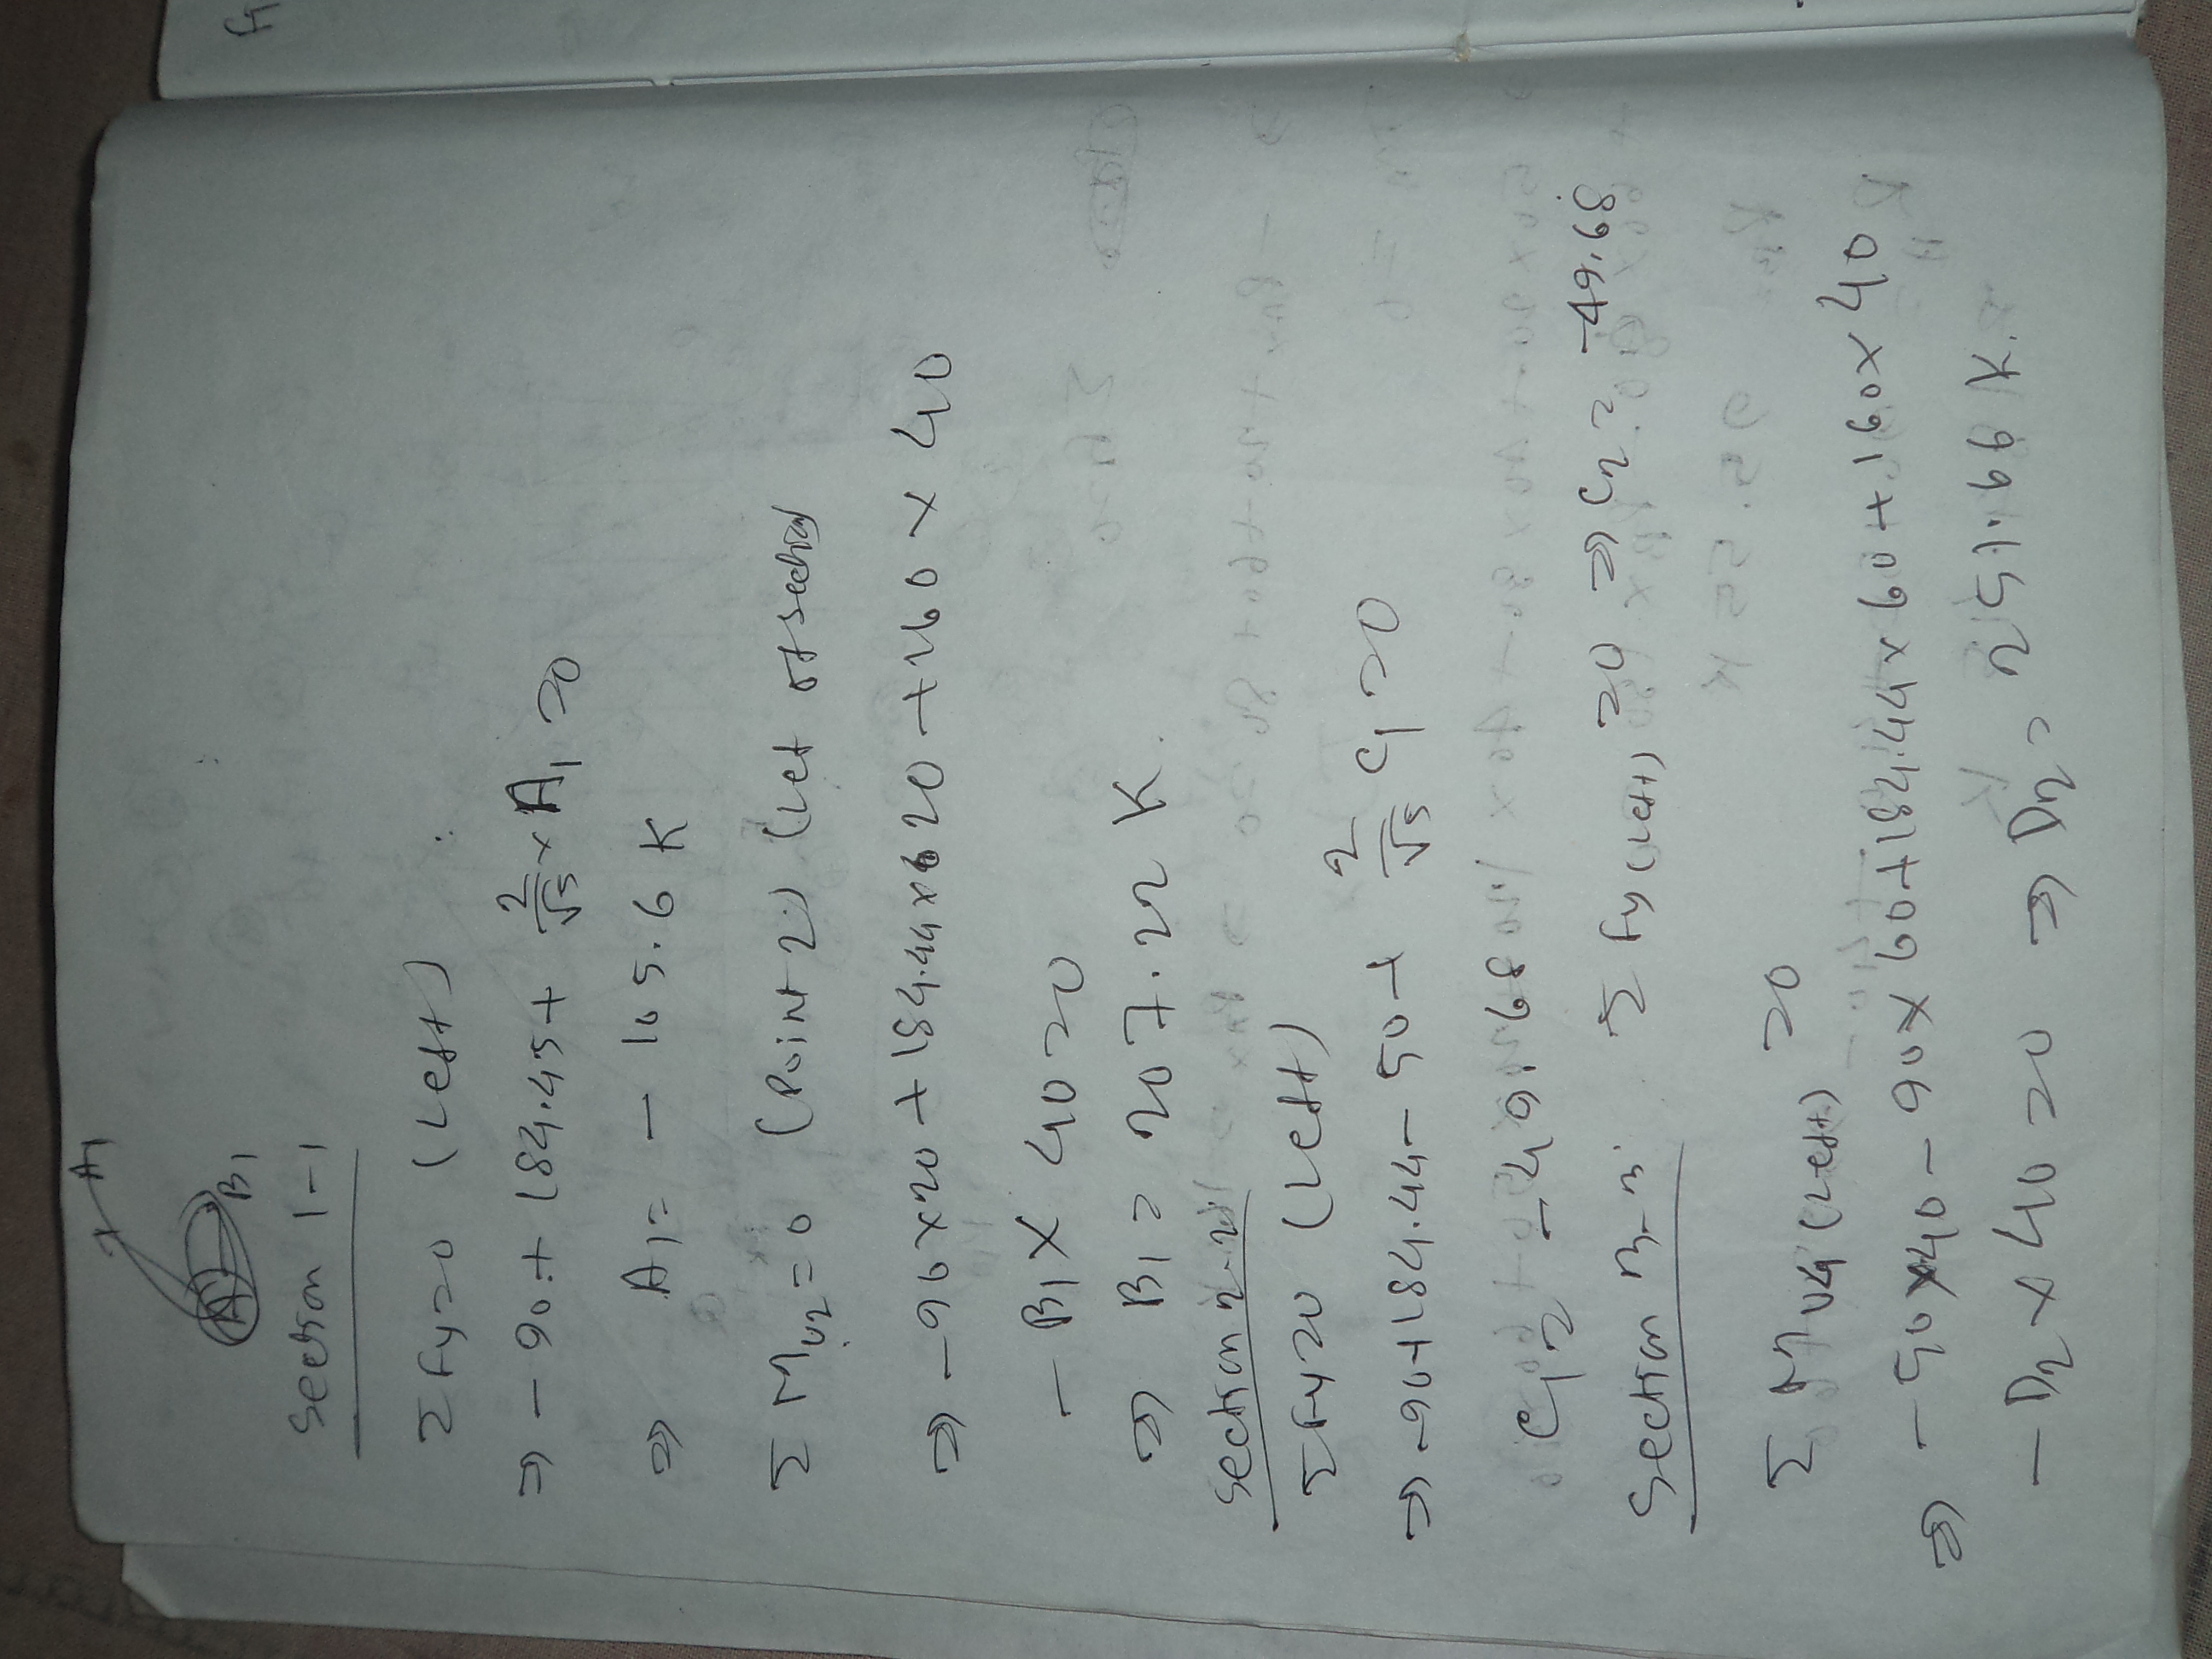 A1
B1
Section 1-1
ΣFy=0 (Left)
⇒ -90+184.45+ 2/√5 × A1 = 0
⇒ A1 = -105.6 K
Σ MU2 = 0 (Point 2) (Left of section
⇒ -90×20+184.44×20+160×40
- B1 × 40 = 0
⇒ B1 = 207.22 K.
Section 2-2
ΣFy=0 (Left)
⇒ -90+184.44-50+ 2/√5 C1 = 0
C1 = -49.68
Section 3-3 ΣFy (Left) = 0 ⇒ C2 = -49.68
Σ MU4 (Left) = 0
⇒ -50×40-90×60+184.44×60+160×40
- D2 × 40 = 0 ⇒ D2 = 251.66 K.